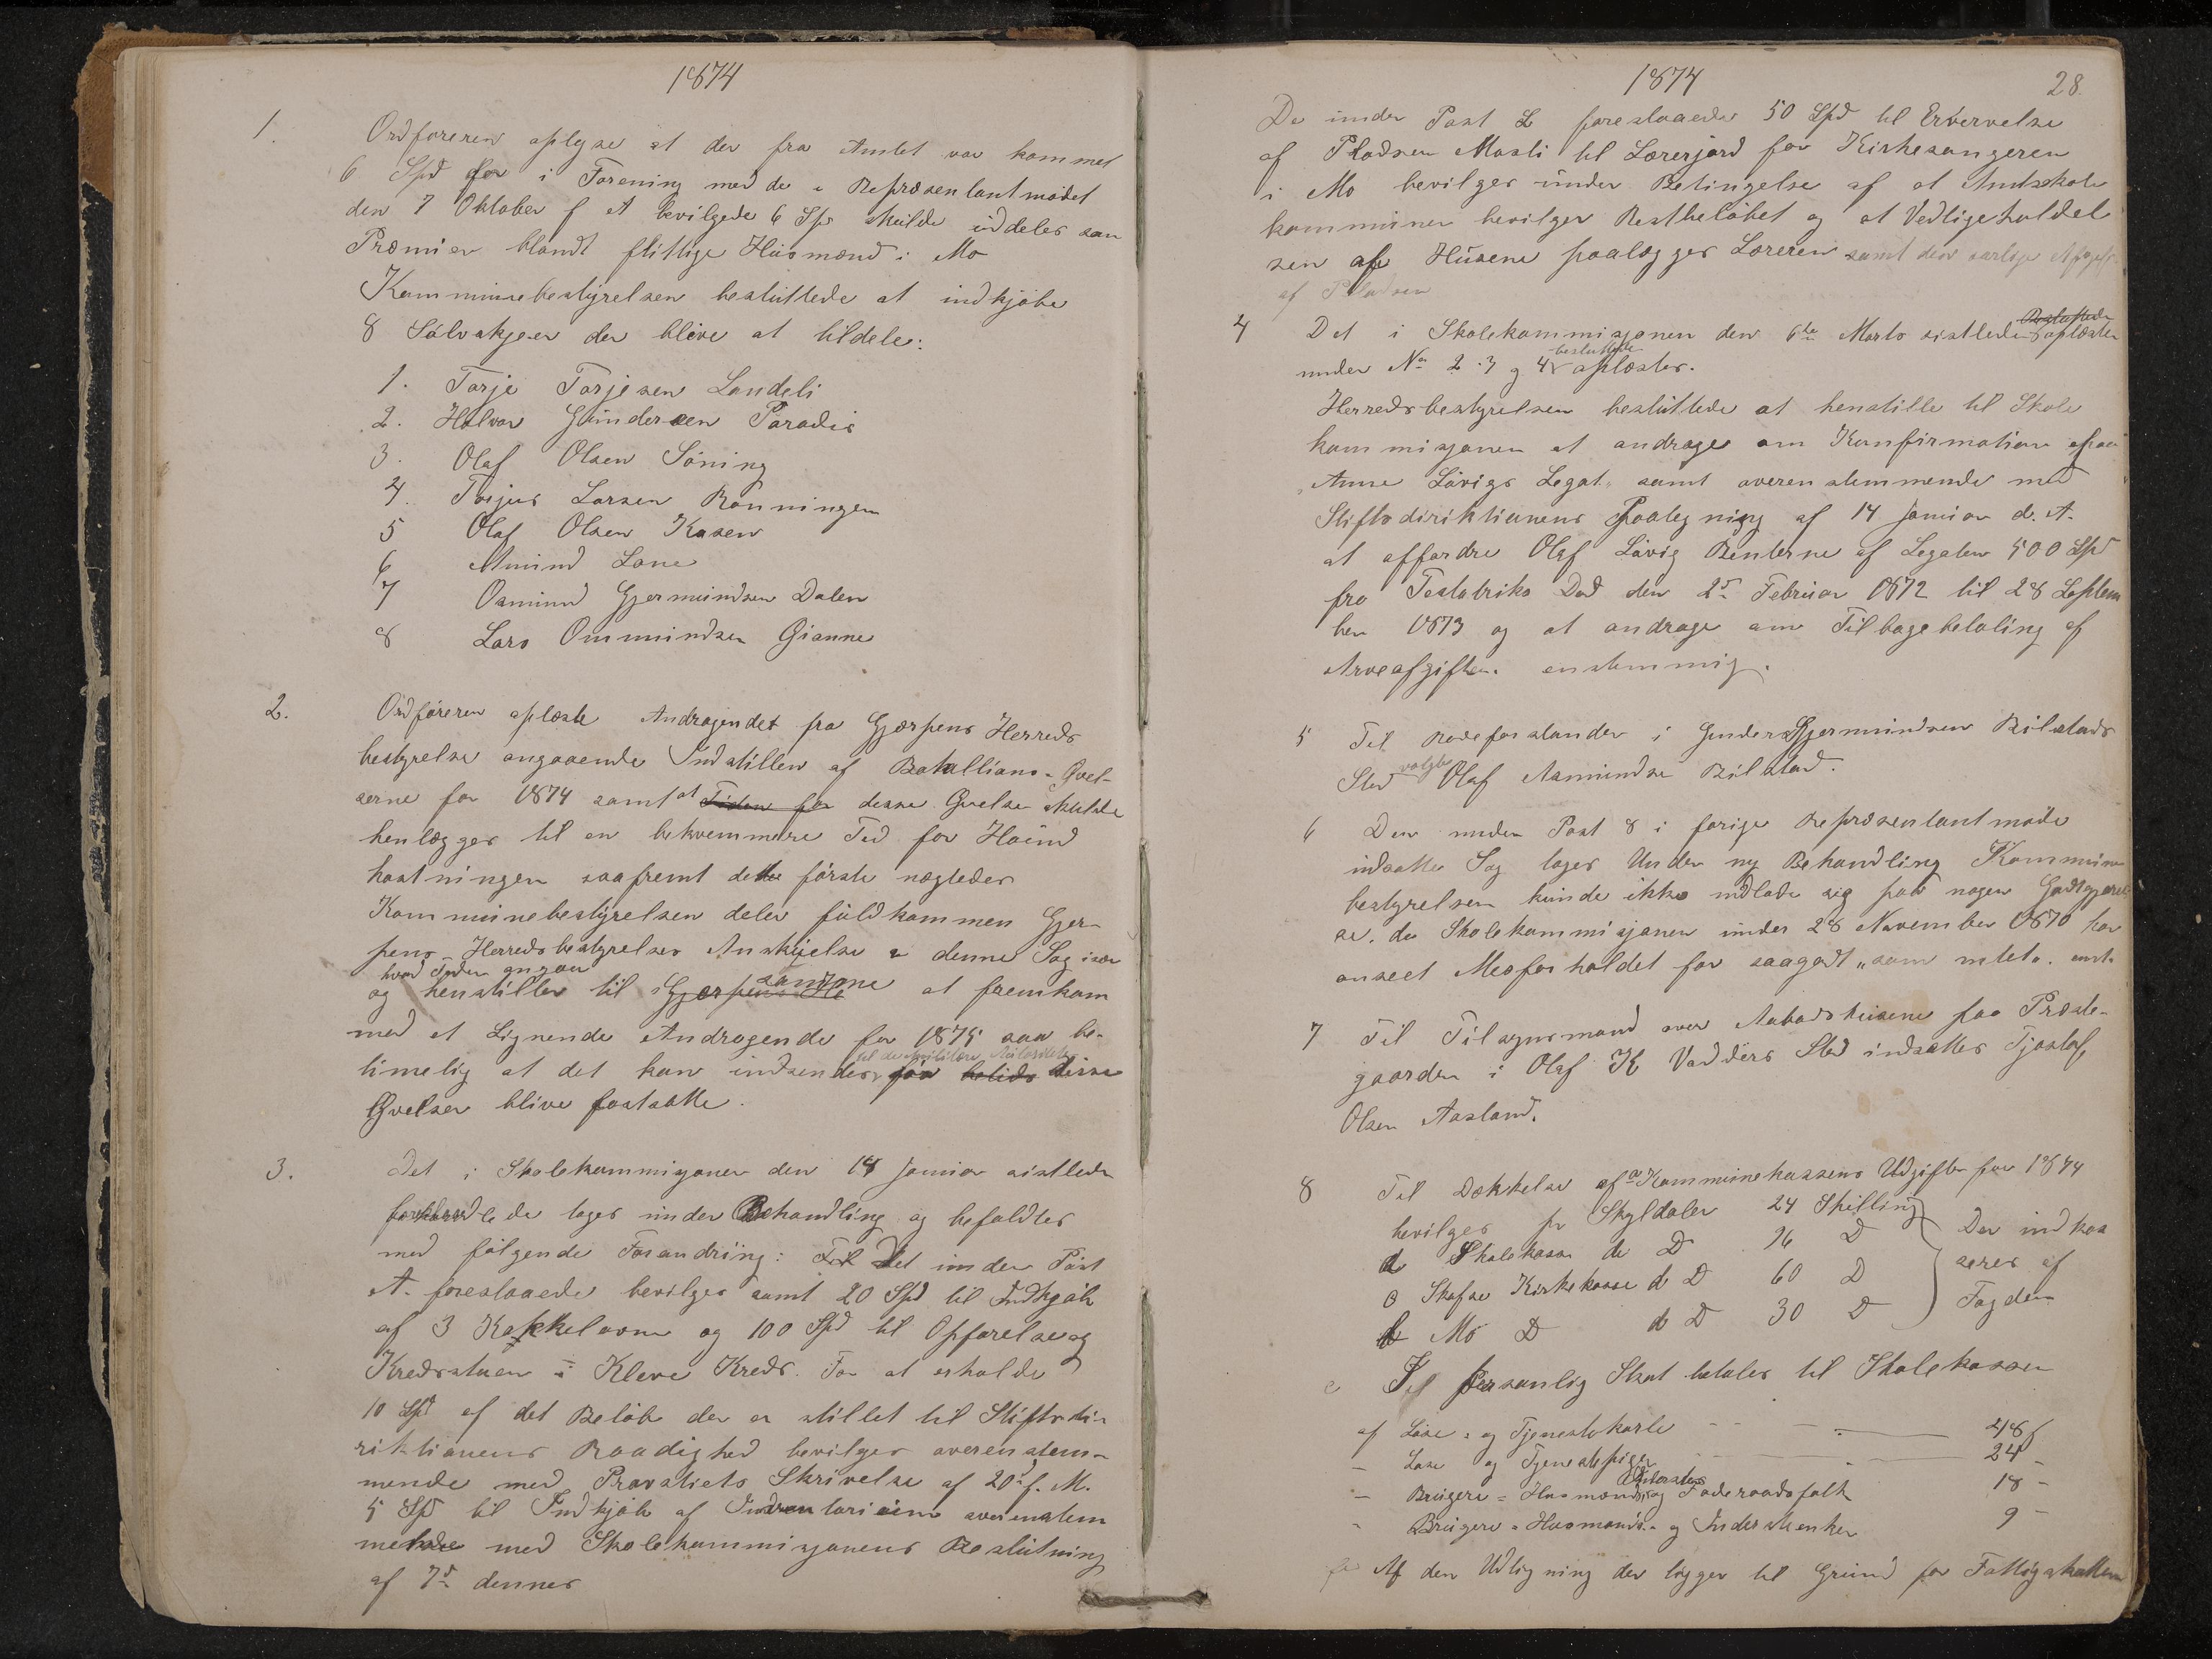 1874
1. Ordføreren oplyse at der fra Amtet var kommet
6 Spd der i Forening med de i Repræsentantmødet
den 7 Oktober f A bevilgede 6 Spd skulde uddeles som
Præmier blandt flittige Husmænd i Mo
Kommunebestyrelsen besluttede at indkjøbe
8 Sølvskjeer der blive at tildele:
1. Torje Torjesen Landeli
2. Halvor Gundersen Paradis
3. Olaf Olsen Søning
4. Torjus Larsen Rønningen
5 Olaf Olsen Kasen
6 Amund Lone
7 Osmund Gjermundsen Dalen
8 Lars Ommundsen Gianne
2. Ordføreren oplæste Andragendet fra Gjerpens Herreds
bestyrelse angaaende Indstillen af Batallions-Øvel-
serne for 1874 samt at Tiden for desse Øvelse skulde
henlægges til en bekvemmere Tid for Haaind
hostningen saafremt dette første nægtedes
Kommunebestyrelsen deler fuldkommen Gjer-
pens Herredsbestyrelses Anskuelse i denne Sag især
hvad Tiden angaar
og henstiller til Gjerpens He samme at fremkom
med et Lignende Andragende for 1875 saa be-
til de militære Autoriteter
timelig at det kan indsendes før betids disse
Øvelser blive fastsatte.
3. Det i Skolekommisjonen den 14 Januar sistleden
forhandlede toges under Behandling og befuldtes
med følgende Forandring: Til Det under Post
A. foreslaaede bevilges samt 20 Spd til Indkjøb
af 3 Kakkelovne og 100 Spd til Opførelse og
Kredsstuen i Kleve Kreds. For at erholde
10 Spd af det Beløb der er stillet til Stiftsdi-
rektionens Raadighed bevilges overenstem-
mende med Provstiets Skrivelse af 20de f. M.
5 Spd til Indkjøb af Inventarium overenstem
mende med Skolekommisjonens Beslutning
af 7de dennes
1874
28.
De under Post L foreslaaede 50 Spd til Erhvervelse
af Pladsen Mosli til Lærerjord for Kirkesangeren
i Mo bevilges under Betingelse af at Amtsskole
kommunen bevilger Restbeløbet og at Vedligeholdel
sen af Husene paalægges Læreren samt den aarlige Afgift
af Pladsen
4 Det i Skolekommisjonen den 6te Marts sistleden Besluttede oplæstes
under No 2. 3 og 4 besluttede oplæstes.
Herredsbestyrelsen besluttede at henstille til Skole
kommisjonen at andrage om Konfirmation paa
Anne Løvigs Legat samt overenstemmende med
Stiftsdirektionens Paategning af 14 Januar d. A.
at affordre Olaf Løvig Renterne af Legaten 500 Spd
fra Testatriks Død den 2den Februar 1872 til 28 Septem
ber 1873 og at andrage om Tilbagebetaling af
Arveafgiften. enstemmig.
5 Til Rodeforstander i Gunder Gjermundsen Bilstads
Sted valgte Olaf Aamundsen Bilstad.
6 Den under Post 8 i forige Repræsentantmøde
indsatte Sag toges Under ny Behandling Kommune
bestyrelsen kunde ikke indlade sig paa nogen Godtgjørel
se. da Skolekommisjonen under 28 November 1870 har
anseet Mesforholdet for saagodt „som intet". enst.
7 Til Tilsynsmand over Aabodshusene paa Præste-
gaarden i Olaf K Vadders Sted indsattes Tjostolf
Olsen Aasland.
8 Til Dækkelse af a Kommunekassens Udgifter for 1874
bevilges pr Skyldaler 24 Skilling
d Skolekasse do D 96 D
c Skafse Kirkekasse do D 60 D
b Mo D do D 30 D
Der indkas
seres af
Fogden
e Til personlig Skat betales til Skolekassen
af Løse- og Tjenestekarle 48 f
– Løse og Tjenestepiger 24 –
– Brugere- Husmænd, Inderster og Føderaadsfolk 18 –
– Brugere- Husmands- og Indersteenker 9 –
f Af den Udligning der ligger til Grund for Fattigskatten